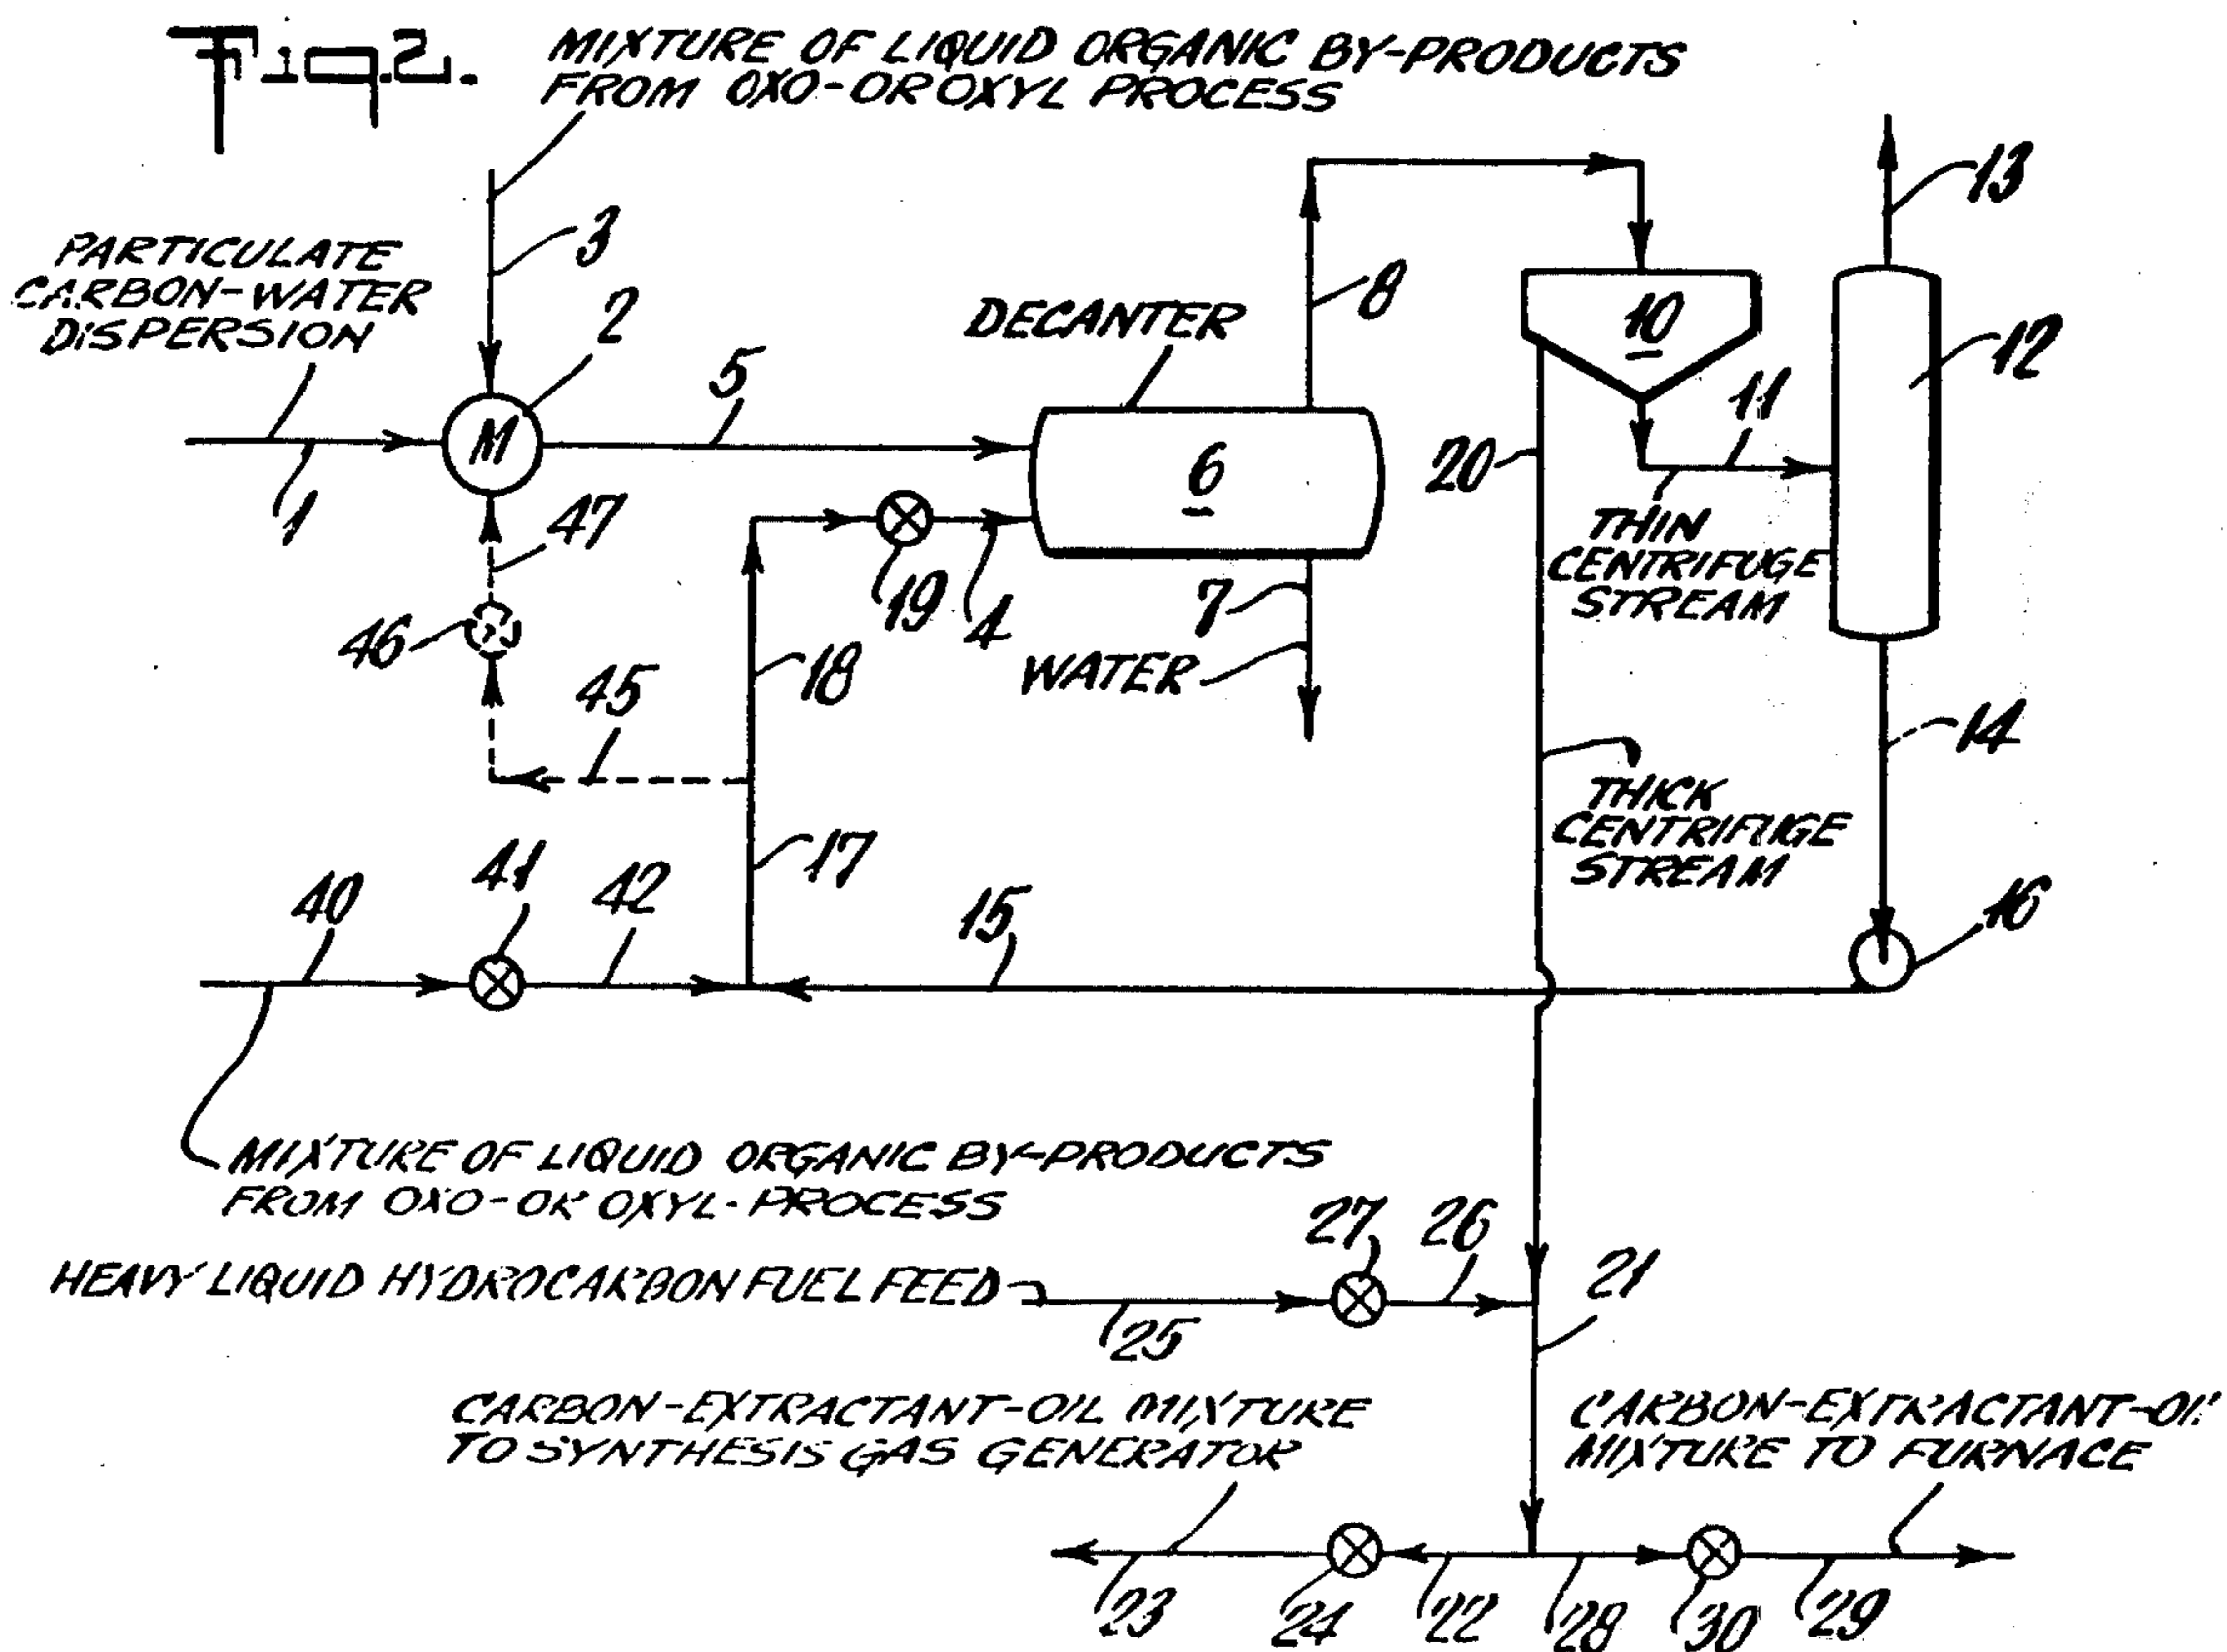 Fig.2.
MIXTURE OF LIQUID ORGANIC BY-PRODUCTS
FROM OXO-OR OXYL PROCESS
13
3
PARTICULATE
CARBON-WATER
DISPERSION
2
8
DECANTER
10
12
5
11
M
6
20
1
47
THIN
CENTRIFUGE
STREAM
19
4
7
46
18
WATER
45
14
THICK
CENTRIFUGE
STREAM
17
41
40
42
15
16
MIXTURE OF LIQUID ORGANIC BY-PRODUCTS
FROM OXO-OR OXYL-PROCESS
27
26
21
HEAVY LIQUID HYDROCARBON FUEL FEED
25
CARBON-EXTRACTANT-OIL MIXTURE
TO SYNTHESIS GAS GENERATOR
CARBON-EXTRACTANT-OIL
MIXTURE TO FURNACE
23
24
22
28
30
29